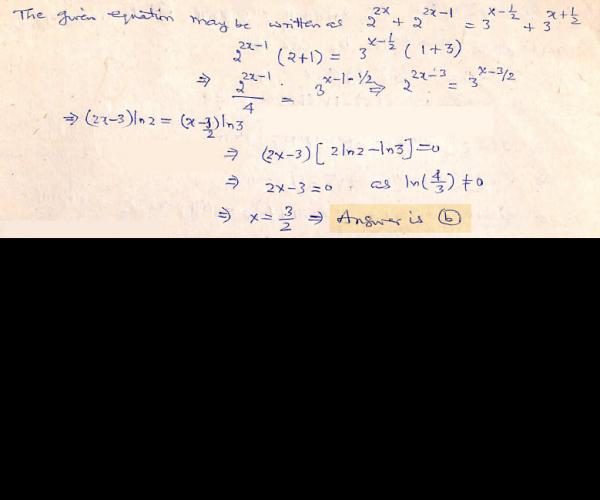 The given equation may be written as 2^{2x} + 2^{2x-1} = 3^{x-1/2} + 3^{x+1/2}
2^{2x-1} (2+1) = 3^{x-1/2} (1+3)
⇒ 2^{2x-1}/4 = 3^{x-1-1/2} ⇒ 2^{2x-3} = 3^{x-3/2}
⇒ (2x-3)ln2 = (x-3/2)ln3
⇒ (2x-3) [2ln2-ln3] = 0
⇒ 2x-3=0 as ln(4/3) ≠ 0
⇒ x = 3/2 ⇒ Answer is (b)